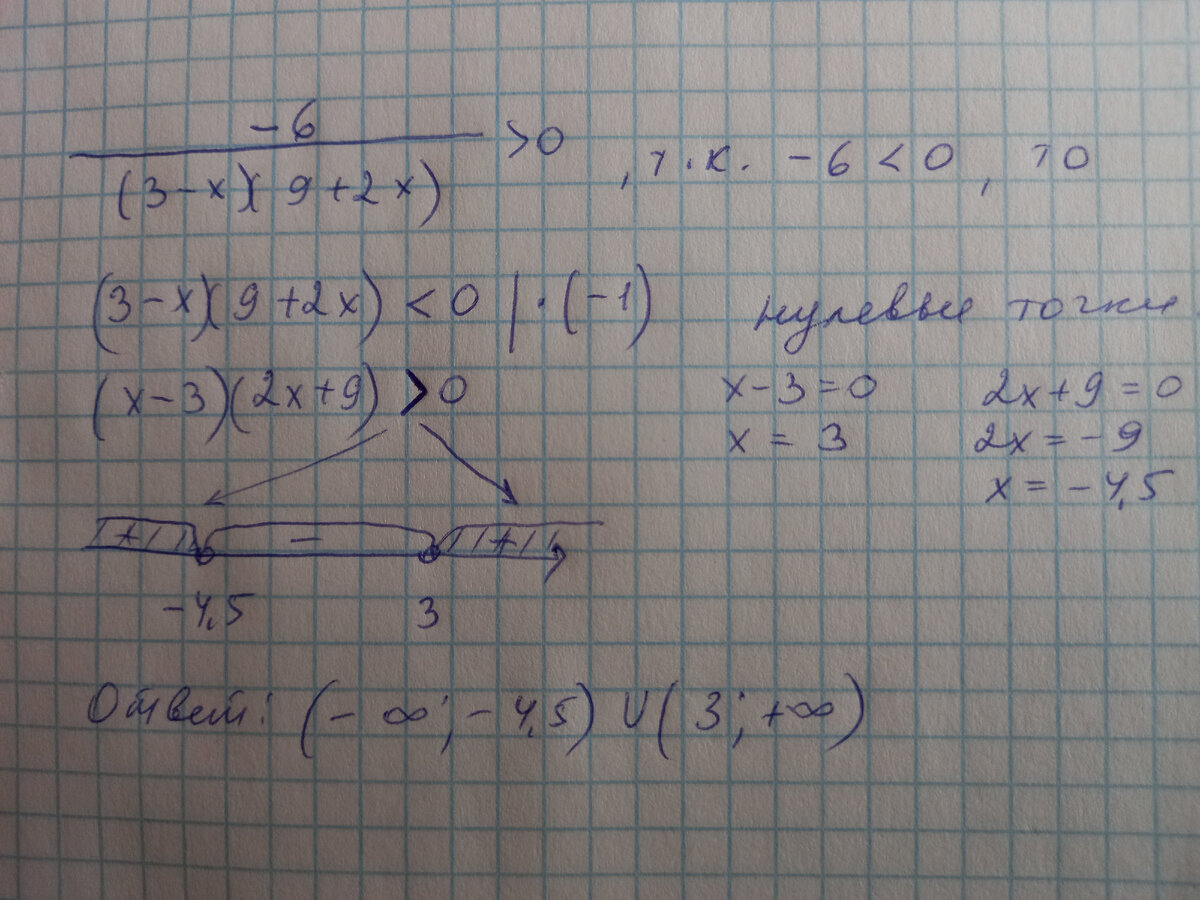 -6
(3-x)(9+2x) >0 , т.к. -6 < 0, то
(3-x)(9+2x) < 0 | · (-1)
нулевые точки
(x-3)(2x+9) > 0
x-3=0 2x+9=0
x = 3 2x = -9
x = -4,5
+ - +
-4,5 3
Ответ: (-∞; -4,5) ∪ (3; +∞)